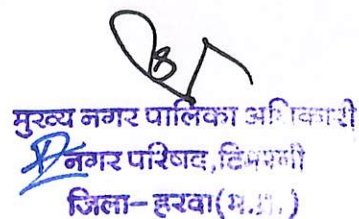 मुख्य नगर पालिका अधिकारी
नगर परिषद, टिमरनी
जिला- हरदा (म.प्र.)